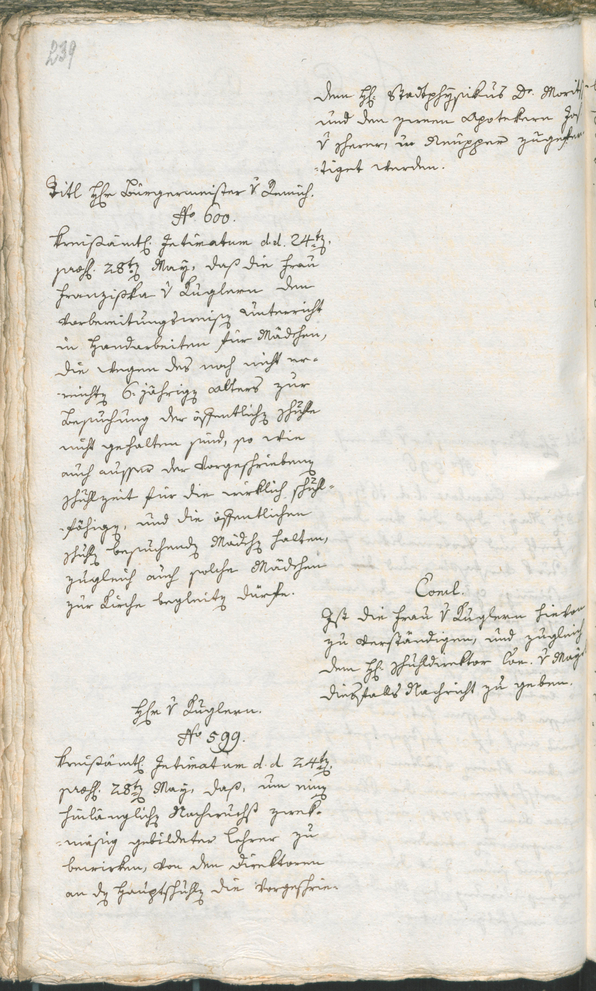 239
dem H. Stadtphysikus Dr. Moritz
und den zween Apotekern
v scherer, in
tiget werden.
Titl Hr Bürgermeister v
No 600.
Kreisämtl. Intimatum d.d. 24t
praes. 28t May, daß die Frau
Franziska v Kuglern den
Vorbereitungsweisen Unterricht
in Handarbeiten für Mädchen,
die wegen des noch nicht er-
reichten 6. jährigen Alters zur
Besuchung der öffentlichen Schule
nicht gehalten sind, so wie
auch ausser der vorgeschriebenen
Schulzeit für die wirklich Schul-
fähigen, und die öffentlichen
Schulen besuchenden Mädchen halten,
zugleich auch solche Mädchen
zur Kirche begleiten dürfe.
Concl.
Ist die Frau v Kuglern hievon
zu verständigen, und zugleich
dem H. Schuldirektor Con. v
diesfalls Nachricht zu geben.
Hr v Kuglern.
No 599.
Kreisämtl. Intimatum d.d. 24t
praes. 28t May, daß, um einen
hinlänglichen Nachwuchs zwek-
mäsig gebildeter Lehrer zu
bewirken, von den Direktoren
an den Hauptschulen die vorgeschrie-